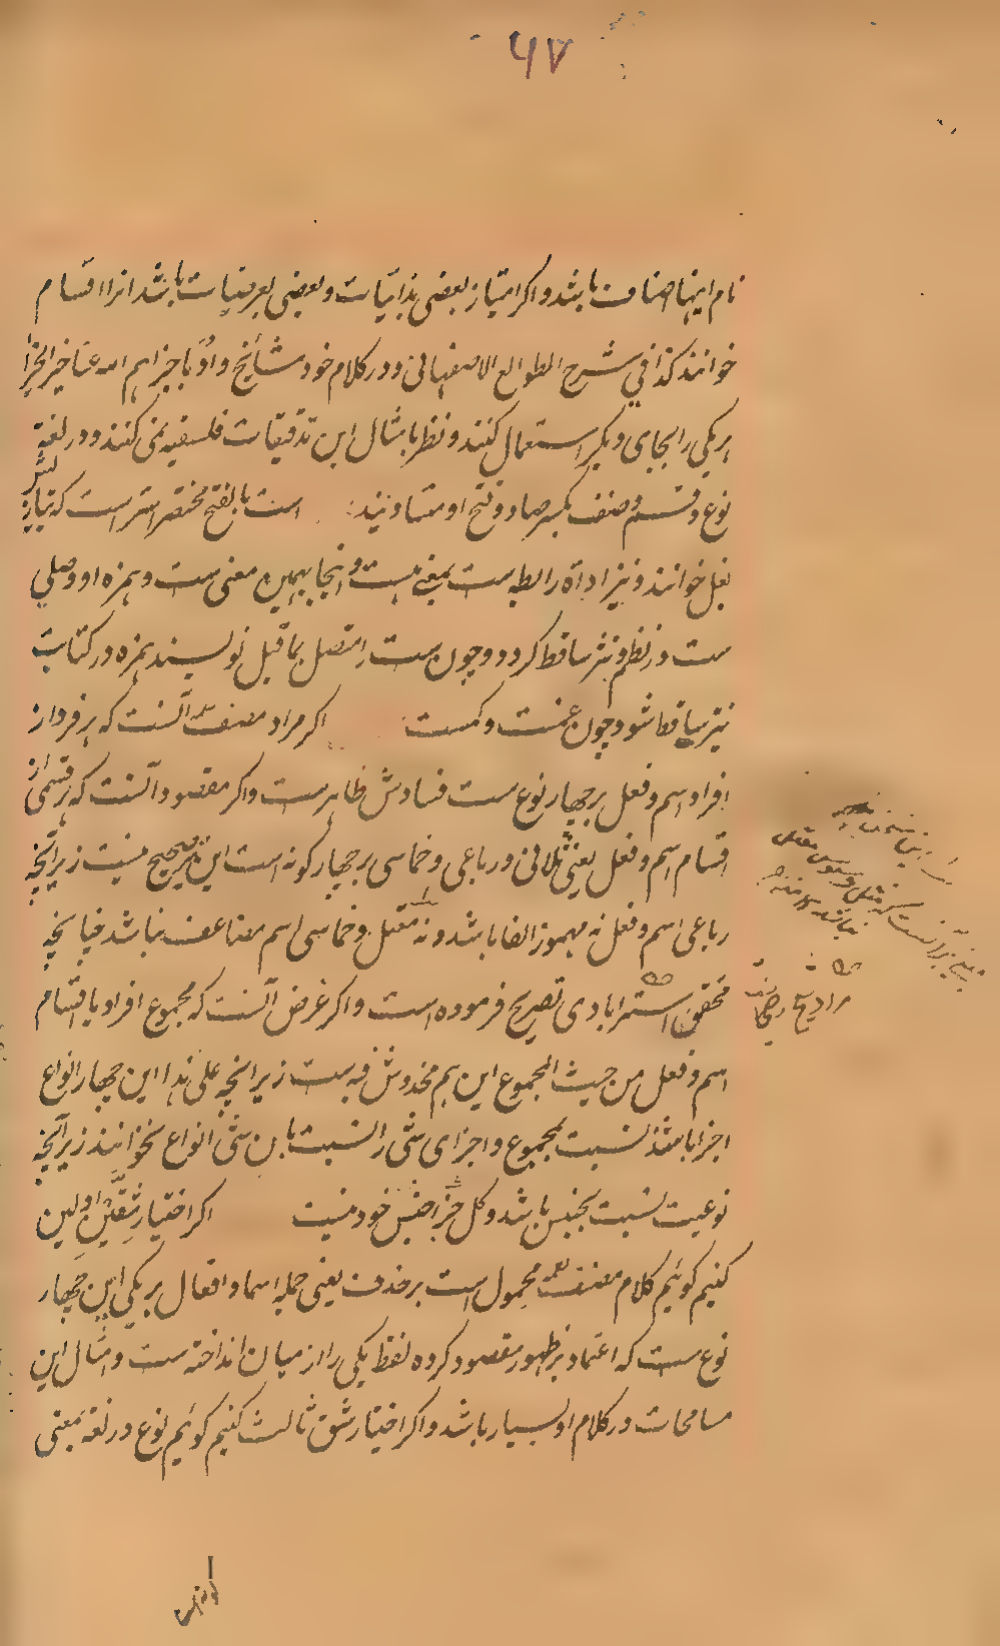 ۶۷
نام اینها اصناف باشد و اکر امتیاز بعضی بذاتیات و بعضی بعرضیات باشد انرا اقسام
خوانند کذا فی شرح الطوالع الاصفهانی و در کلام خود مشائخ و ادبا جزاهم الله عنا خیر الجزا
هر یکی را بجای دیکر استعمال کنند و نظر بامثال این تدقیقات فلسفیه نمی کنند و در لغة
نوع و قسم و صنف بکسر صاد و فتح او متساویند است بالفتح مختصر استر است که بتازی
بغل خوانند و نیز اداة رابطه ست بمعنی هست و اینجا بهمین معنی ست و همزه او وصلی
ست در نظم و نثر ساقط کردد و چون ست را متصل بماقبل نویسند همزه در کتابت
نیز ساقط شود چون غمست و کمست اکر مراد مصنف آنست که هر فرد از
افراد اسم و فعل بر چهار نوع ست فسادش ظاهر ست و اکر مقصود آنست که هر قسمی از
اقسام اسم و فعل یعنی ثلاثی و رباعی و خماسی بر چهار کونه است این نیز صحیح نیست زیرانچه
رباعی اسم و فعل نه مهموز الفا باشد و نه معتل و خماسی اسم مضاعف نباشد چنانچه
محقق استرابادی تصریح فرموده است و اکر غرض آنست که مجموع افراد یا اقسام
اسم و فعل من حیث المجموع این هم مخدوش فیه ست زیرانچه علی هذا این چهار انواع
اجزا باشند نسبت بمجموع و اجزای شی را نسبت بان شی انواع نخوانند زیرانچه
نوعیت نسبت بجنس باشد و کل جزء جنس خود نیست اکر اختیار شقین اولین
کنیم کوئیم کلام مصنف محمول ست بر حذف یعنی جمله اسما و افعال بر یکی این چهار
نوع ست که اعتماد بر ظهور مقصود کرده لفظ یکی را از میان انداخته ست و امثال این
مسامحات در کلام او بسیار باشد و اکر اختیار شق ثالث کنیم کوئیم نوع در لغة بمعنی